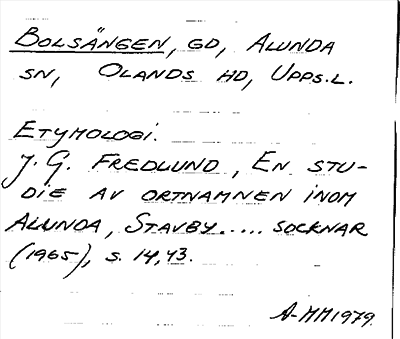 BOLSÄNGEN, GD, ALUNDA
SN, OLANDS HD, UPPS.L.
ETYMOLOGI.
J. G. FREDLUND, EN STU-
DIE AV ORTNAMNEN INOM
ALUNDA, STAVBY..... SOCKNAR
(1965), S. 14,43.
A-MM1979.